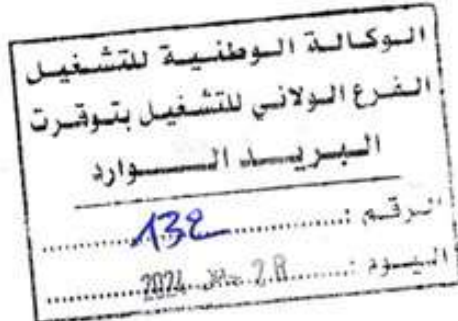 الوكالة الوطنية للتشغيل
الفرع الولائي للتشغيل بتوقرت
البريد الوارد
الرقم : 132
اليوم : 28 2024